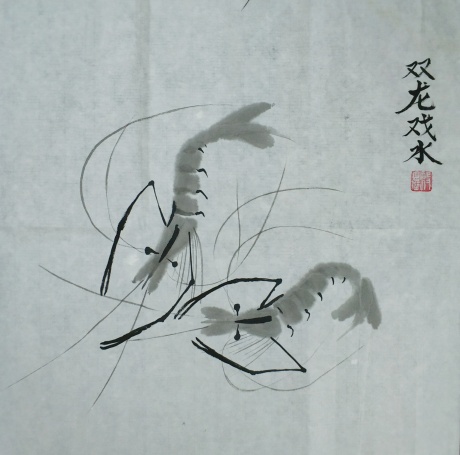 双龙戏水